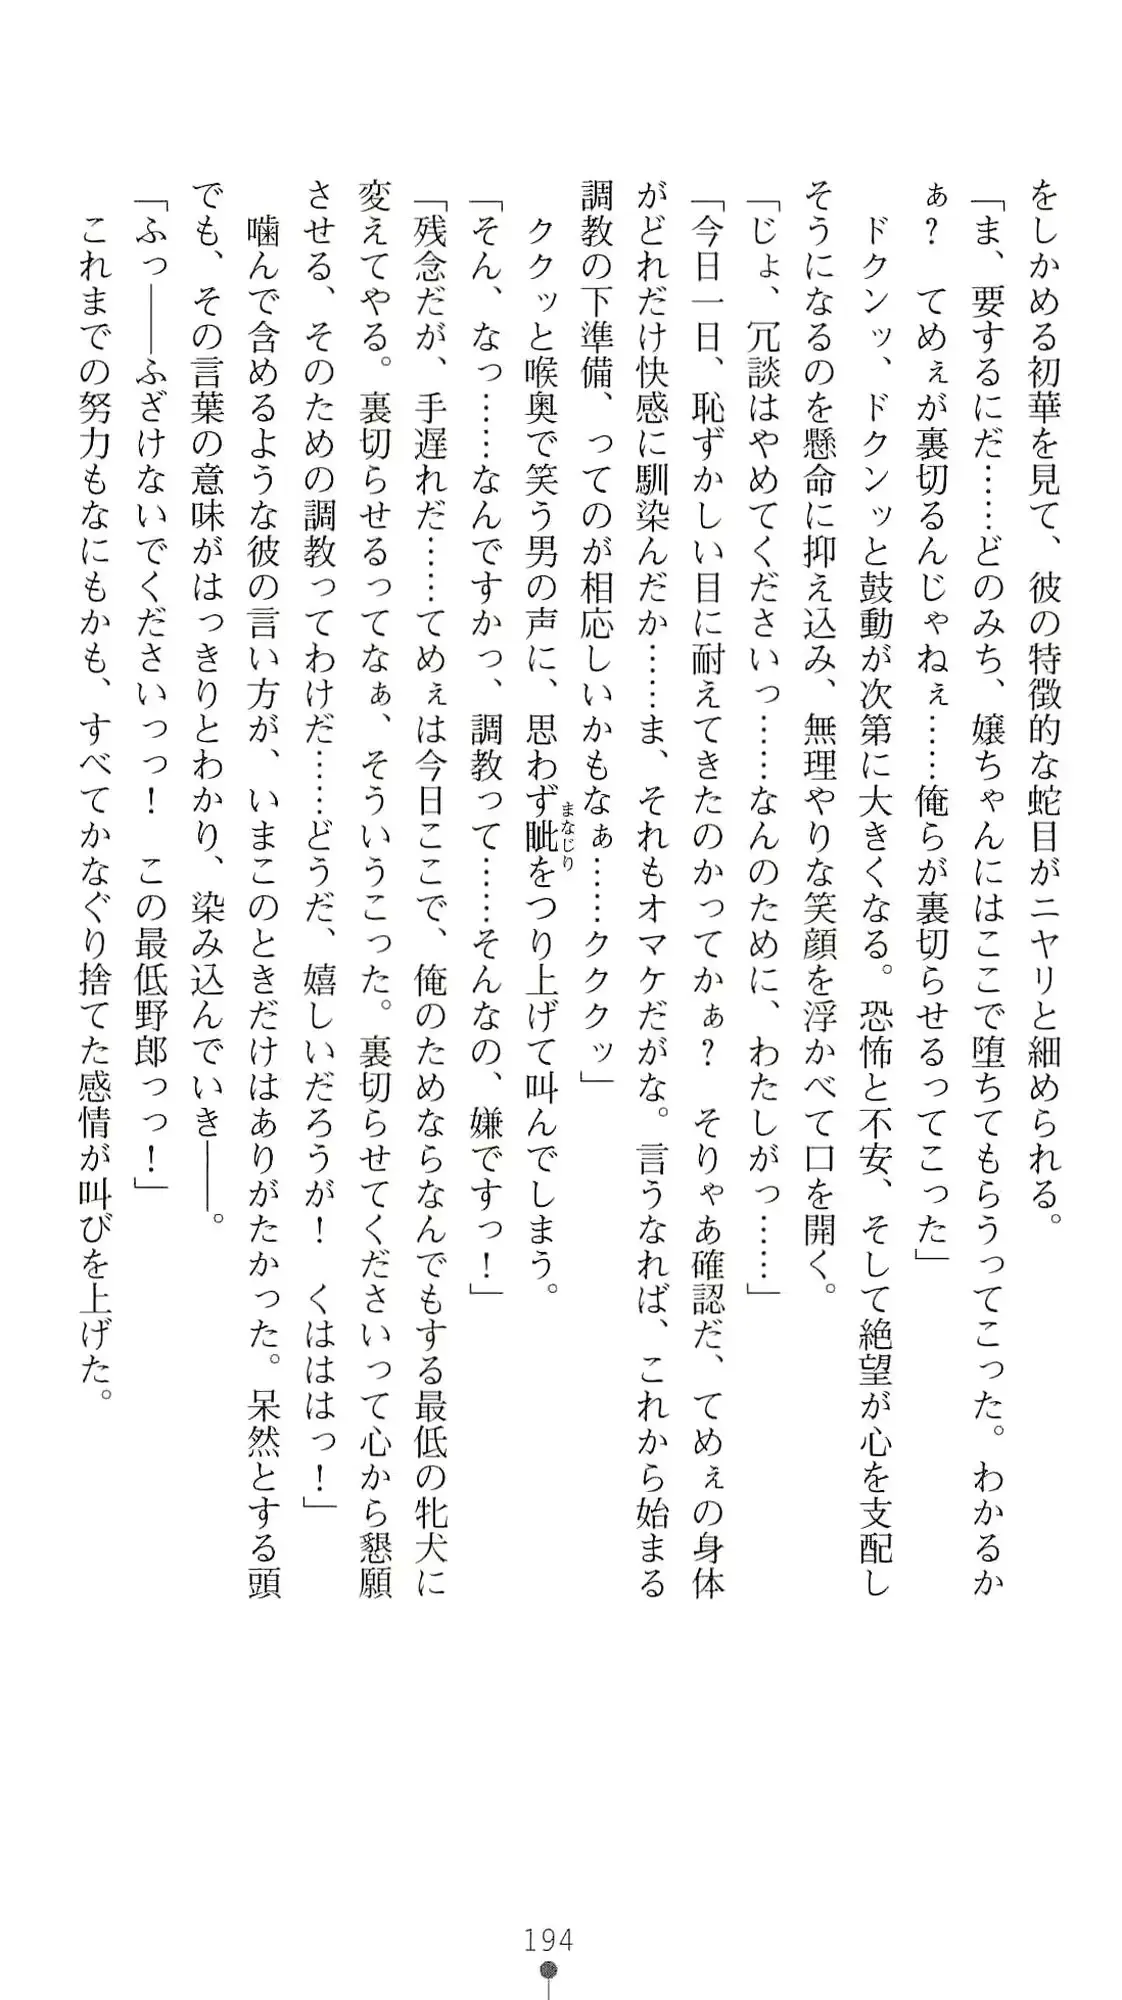 をしかめる初華を見て、彼の特徴的な蛇目がニヤリと細められる。
「ま、要するにだ……どのみち、嬢ちゃんにはここで堕ちてもらうってこった。わかるか
ぁ？　てめぇが裏切るんじゃねぇ……俺らが裏切らせるってこった」
　ドクンッ、ドクンッと鼓動が次第に大きくなる。恐怖と不安、そして絶望が心を支配し
そうになるのを懸命に抑え込み、無理やりな笑顔を浮かべて口を開く。
「じょ、冗談はやめてくださいっ……なんのために、わたしがっ……」
「今日一日、恥ずかしい目に耐えてきたのかってかぁ？　そりゃあ確認だ、てめぇの身体
がどれだけ快感に馴染んだか……ま、それもオマケだがな。言うなれば、これから始まる
調教の下準備、ってのが相応しいかもなぁ……クククッ」
　ククッと喉奥で笑う男の声に、思わず眦をつり上げて叫んでしまう。
まなじり
「そん、なっ……なんですかっ、調教って……そんなの、嫌ですっ！」
「残念だが、手遅れだ……てめぇは今日ここで、俺のためならなんでもする最低の牝犬に
変えてやる。裏切らせるってなぁ、そういうこった。裏切らせてくださいって心から懇願
させる、そのための調教ってわけだ……どうだ、嬉しいだろうが！　くはははっ！」
　噛んで含めるような彼の言い方が、いまこのときだけはありがたかった。呆然とする頭
でも、その言葉の意味がはっきりとわかり、染み込んでいき――。
「ふっ――ふざけないでくださいっっ！　この最低野郎っっ！」
　これまでの努力もなにもかも、すべてかなぐり捨てた感情が叫びを上げた。
194